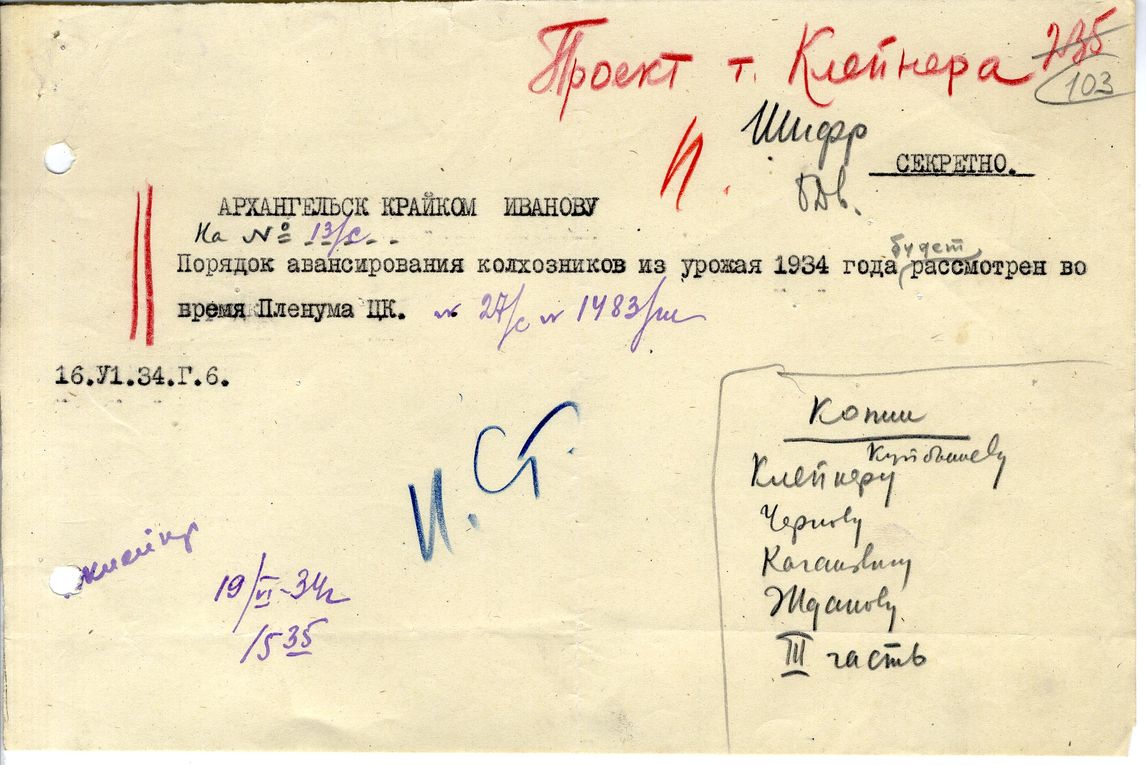 Проект т. Клейнера 235
103
Шифр
И.
СЕКРЕТНО.
АРХАНГЕЛЬСК КРАЙКОМ ИВАНОВУ
На № 13/с
будет
Порядок авансирования колхозников из урожая 1934 года рассмотрен во
время Пленума ЦК. № 27/с № 1483/ш
16.У1.34.Г.6.
И. Ст.
Копии
Куйбышеву
Клейнеру
Чернову
Кагановичу
Жданову
III часть
19/VI-34г
15 35